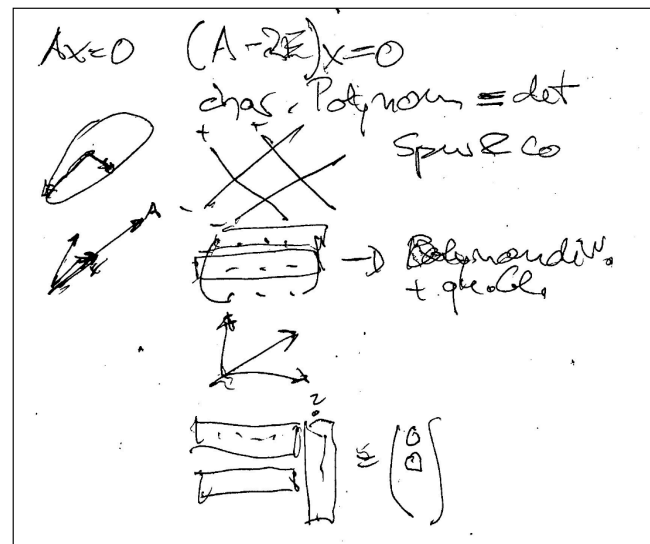 Ax=0 (A-λE)x=0
char. Polynom = det
Spur & Co
+ +
A
- -
→ Polynomdiv.
+ qu. Gl.
?
= (0
0)